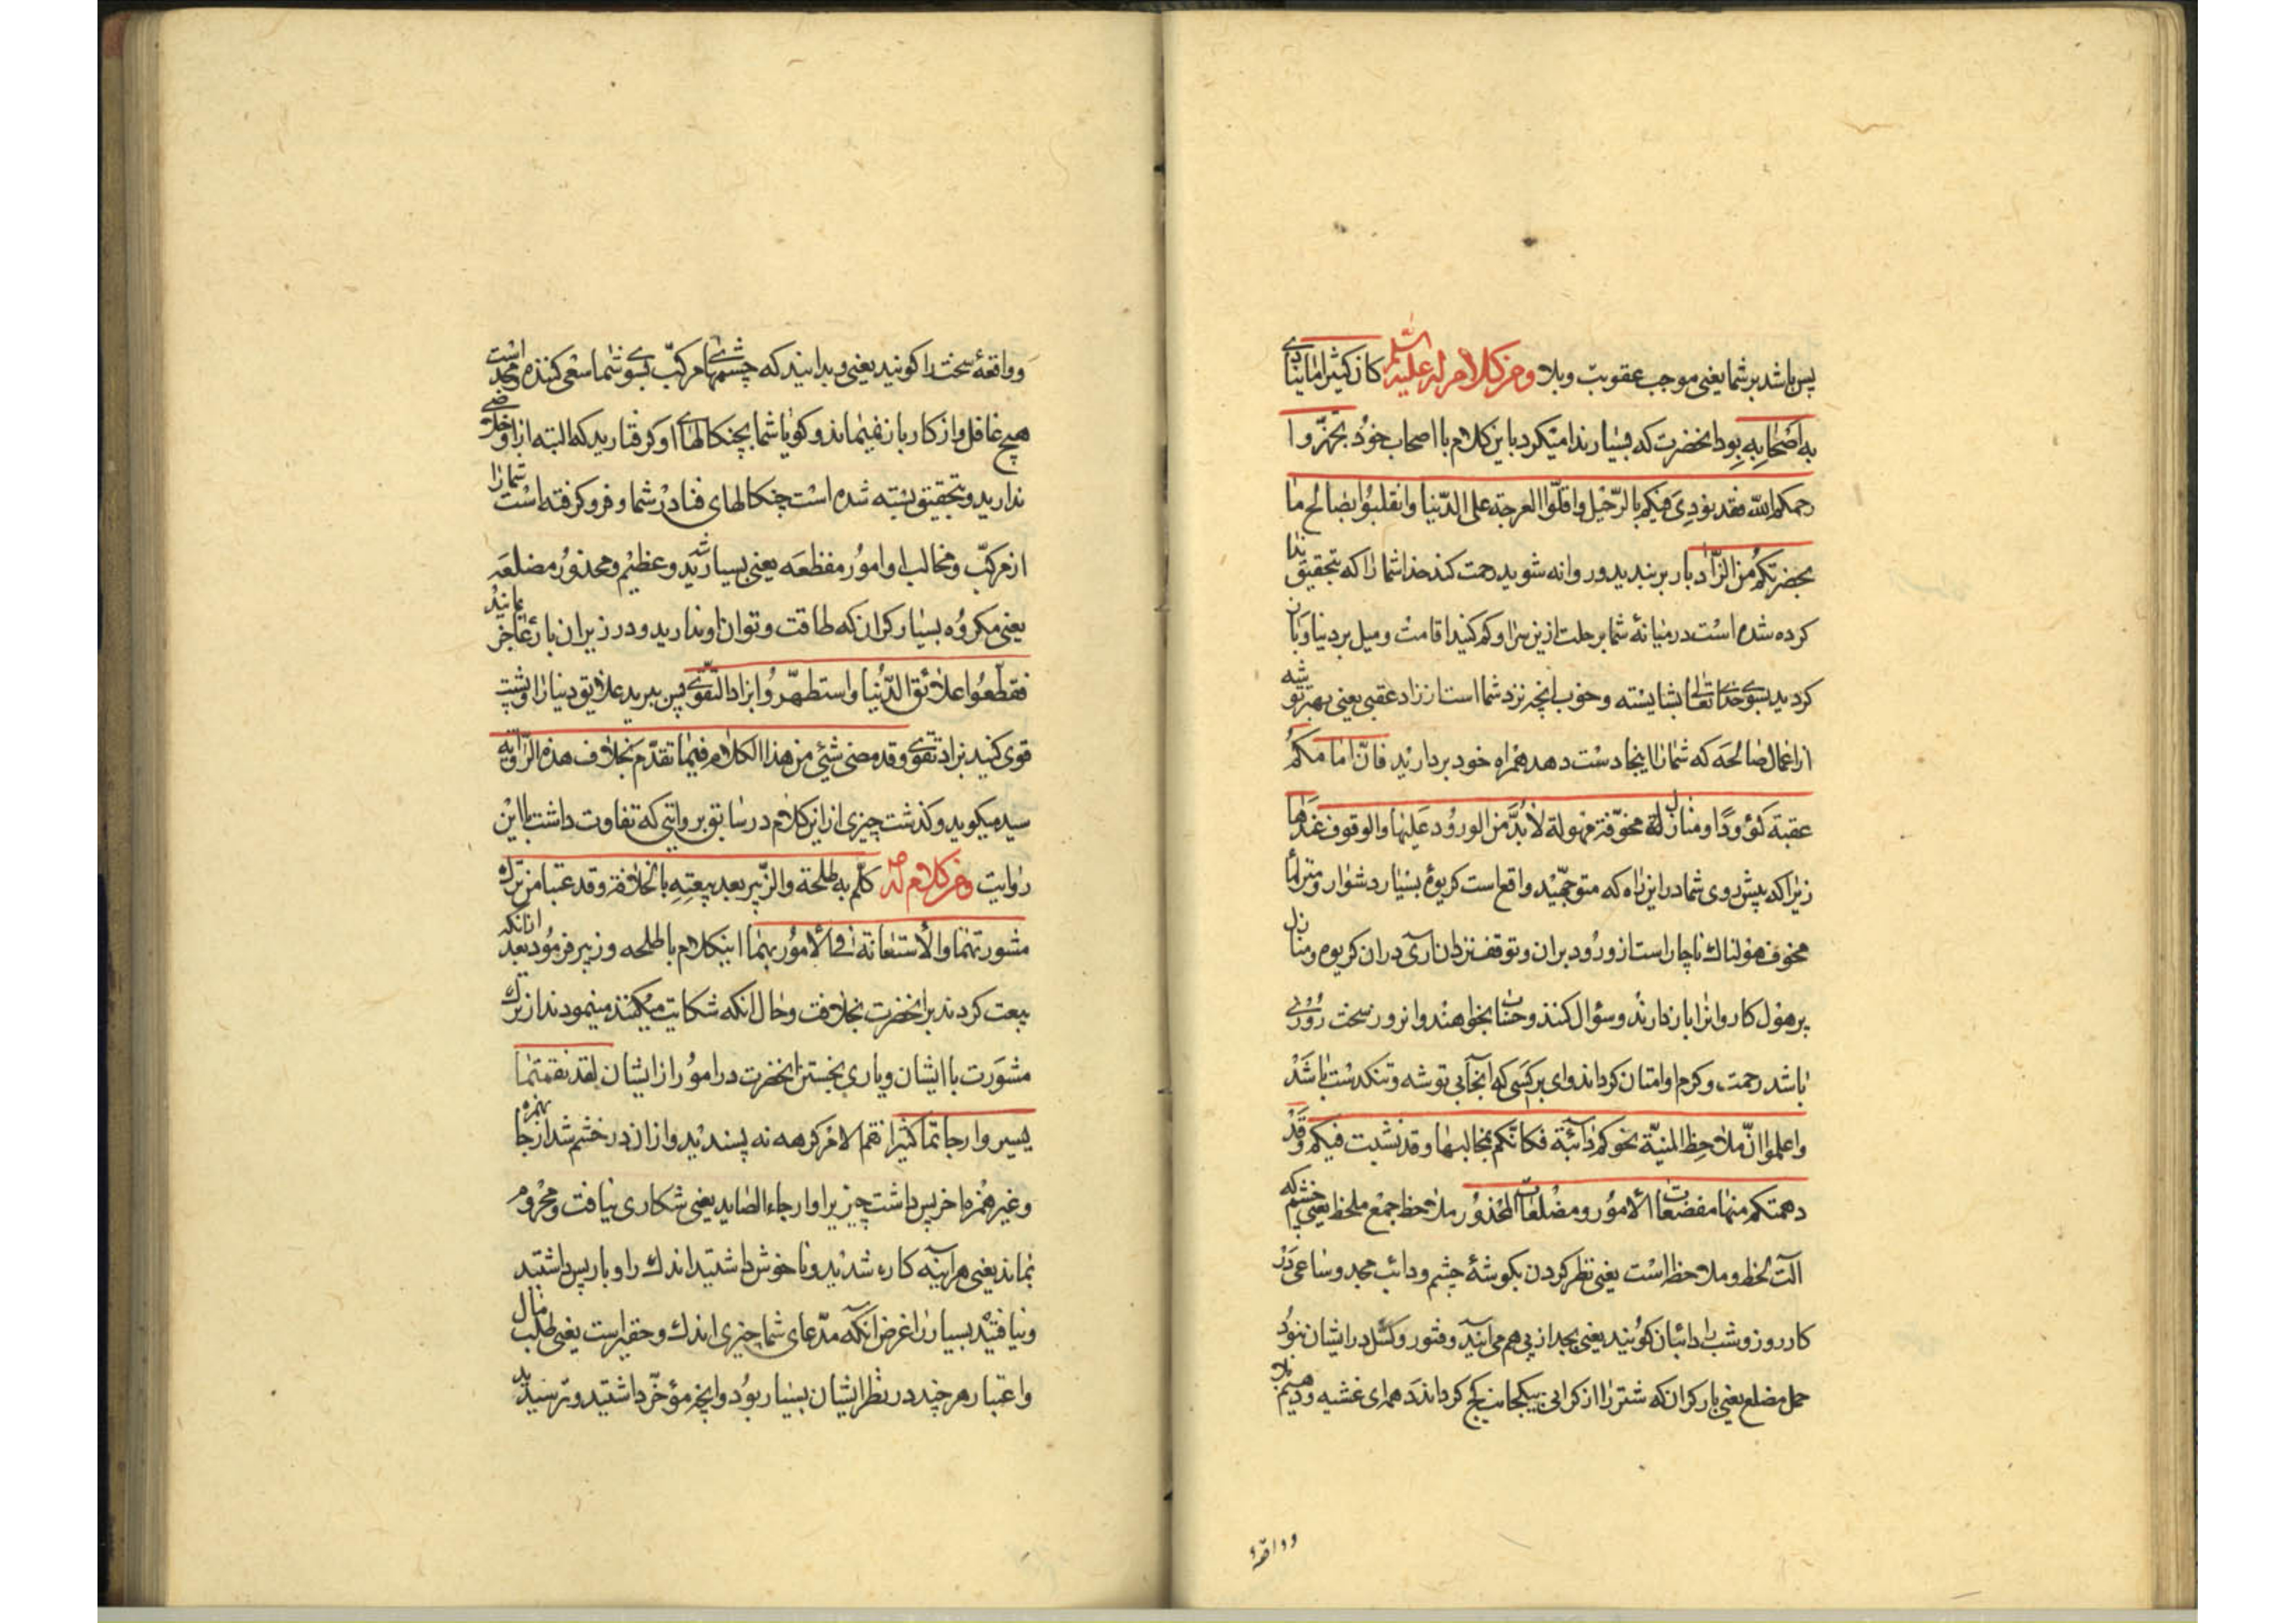 پس باشد بر شما یعنی موجب عقوبت و بلا ومن کلام له علیه السلام کان کثیرا ما ینادی
به اصحابه بود انحضرت که بسیار ندا میکرد باین کلام با اصحاب خود تجهّزوا
رحمکم الله فقد نودی فیکم بالرّحیل واقلّوا العرجة علی الدّنیا وانقلبوا بصالح ما
بحضرتکم من الزّاد بار بر بندید و روانه شوید رحمت کند خدا شما را که بتحقیق ندا
کرده شده است در میانهٔ شما برحلت ازین سرا و کم کنید اقامت و میل بر دنیا و باز
کردید بسوی خدای تعالی بشایسته و خوب انچه نزد شما است از زاد عقبی یعنی بهتر توشه
از اعمال صالحه که شما را اینجا دست دهد همراه خود بردارید فانّ امامکم
عقبة کؤودًا ومنازل مخوّفة مهولة لابدّ من الورود علیها والوقوف عندها
زیرا که پیش روی شما در این راه که متوجّهید واقع است کریوهٔ بسیار دشوار و منزلها
مخوف هولناک ناچار است از ورود بران و توقف نزد ان اری دران کریوه و منازل
پر هول کاروانرا باز دارند و سؤال کنند و حساب بخواهند وانروز سخت روزی
باشد رحمت و کرم او امتان کرداند وای بر کسی که انجا بی توشه و تنکدست باشد
واعلموا انّ ملاحظ المنیّة نحوکم دائبة فکانّکم بمخالبها وقد نشبت فیکم وقد
دهمتکم منها مفضعات الامور ومضلعات المحذور ملاحظ جمع ملحظ یعنی چشم که
آلت لحظ و ملاحظه است یعنی نظر کردن بکوشهٔ چشم و دائب مجد و ساعی در
کار روز و شب را دائبان کویند یعنی بجد از پی هم می ایند و فتور و کسل در ایشان نبود
حمل مضلع یعنی بار کران که شتر را از کرانی بیکجانب کج کرداند دهم ای غشیه و دهیم بلا
وواقعهٔ
وواقعهٔ سخت را کویند یعنی و بدانید که چشمهای مرک بسوی شما سعی کننده و مجد است
هیچ غافل و از کار باز نمیماند و کویا شما بچنکالهای او کرفتارید که البته از او خلاصی
ندارید و بتحقیق بسته شده است چنکالهای فنا در شما و فرو کرفته است شما را
از مرک و مخالب او امور مفظعه یعنی بسیار شدید و عظیم و محذور مضلعه
یعنی مکروه بسیار کران که طاقت و توان او ندارید و در زیر ان بار عاجز بمانید
فقطّعوا علائق الدّنیا واستظهروا بزاد التقوی پس ببرید علایق دنیا را و پشت
قوی کنید بزاد تقوی وقد مضی شئ من هذا الکلام فیما تقدّم بخلاف هذه الرّوایة
سید میکوید و کذشت چیزی از این کلام در سابق بروایتی که تفاوت داشت با این
روایت ومن کلام له ص کلّم به طلحة والزّبیر بعد بیعته بالخلافة وقد عتبا من ترک
مشورتهما والاستعانة فی الامور بهما اینکلام با طلحه و زبیر فرمود بعد ازانکه
بیعت کردند برانحضرت بخلافت و حال انکه شکایت میکنند مینمودند از ترک
مشورت با ایشان و یاری نجستن انحضرت در امور از ایشان لقد نقمتما
یسیر وارجاتما کثیرا نقم الامر کرهه نه پسندید وازان در خشم شد ارجا بهمزه
و غیر همزه باخر پس داشت چیزیرا وارجاء الصاید یعنی شکاری نیافت و محروم
بماند یعنی هراینه کاره شدید و ناخوش داشتید اندک را و باز پس داشتید
و نیافتید بسیار را غرض انکه مدّعای شما چیزی اندک و حقیر است یعنی طلب مال
واعتبار هر چند در نظر ایشان بسیار بود وانچه مؤخّر داشتید و نرسیدید